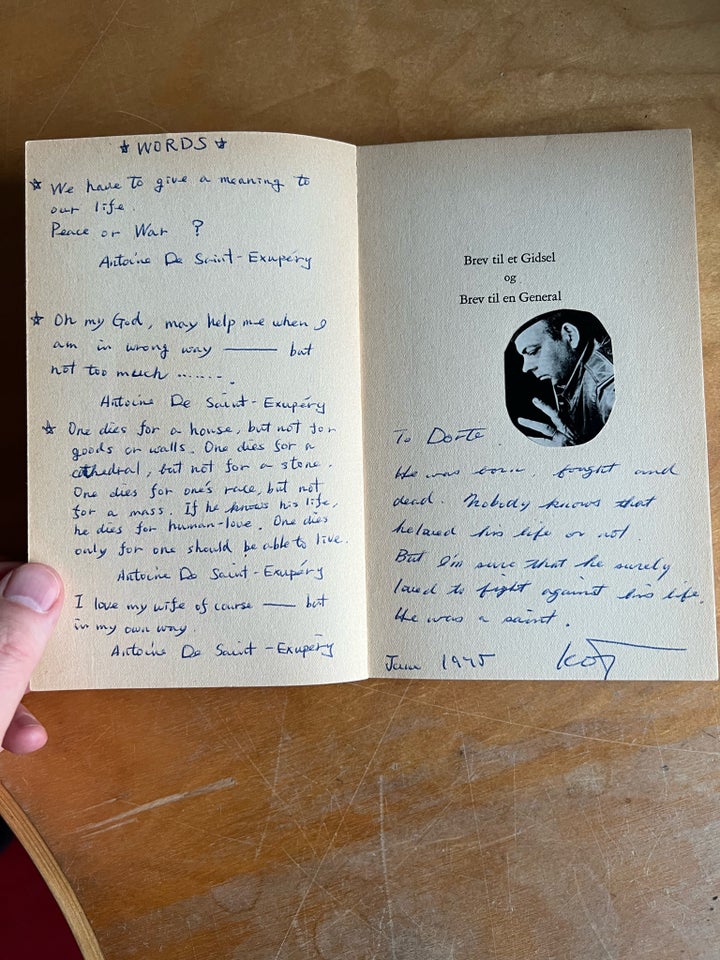 ★ WORDS ★
☆ We have to give a meaning to
our life.
Peace or War ?
Antoine De Saint-Exupéry
☆ Oh my God, may help me when I
am in wrong way —— but
not too much .......
Antoine De Saint-Exupéry
☆ One dies for a house, but not for
goods or walls. One dies for a
cathedral, but not for a stone.
One dies for one's race, but not
for a mass. If he knows his life,
he dies for human-love. One dies
only for one should be able to live.
Antoine De Saint-Exupéry
I love my wife of course —— but
in my own way.
Antoine De Saint-Exupéry
Brev til et Gidsel
og
Brev til en General
To Dorte.
He was born, fought and
dead. Nobody knows that
he loved his life or not.
But I'm sure that he surely
loved to fight against his life.
He was a saint.
1975